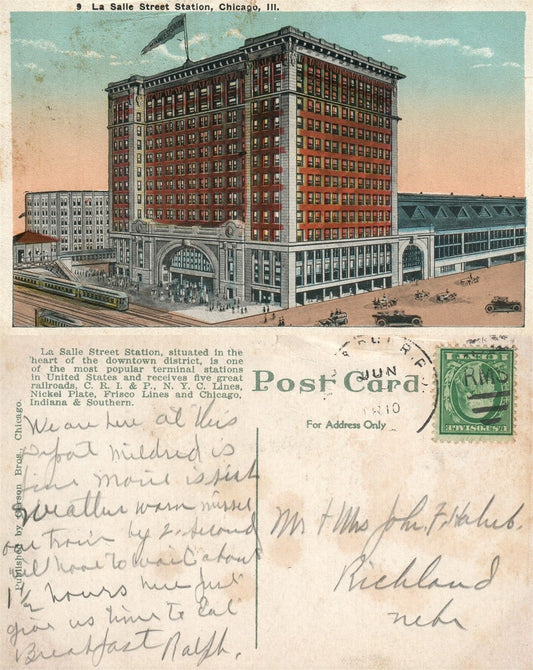 9 La Salle Street Station, Chicago, Ill.
La Salle Street Station, situated in the
heart of the downtown district, is one
of the most popular terminal stations
in United States and receives five great
railroads, C. R. I. & P., N. Y. C. Lines,
Nickel Plate, Frisco Lines and Chicago,
Indiana & Southern.
Post Card
For Address Only
JUN
RMS
Published by Gerson Bros., Chicago.
We are here at this
depot Mildred is
fine Marie is sick
Weather warm missed
our train by 2 second
will have to wait about
1 1/2 hours here just
give us time to eat
Breakfast Ralph.
Mr & Mrs John. F.
Richland
Nebr